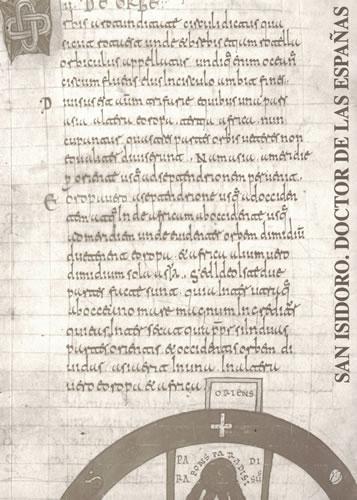 II. De orbe
orbis a rotunditate circuli dictus quia
sicut rota est unde et brebis etiam rotella
orbiculus appellatur undiq; enim oceanus
circumfluens eius in circulo ambit fines
Divisus est autem trifarie e quibus una pars
asia altera europa tertia africa nun
cupatur quas tres partes orbis veteres non
equaliter diviserunt. Nam asia a meridie
p orientem usq; ad septentrionem pervenit.
Europa vero a septentrione usq; ad occiden
tem atq; inde africa ab occidente usq;
ad meridiem unde evidenter orbem dimidium
due tenent europa et africa alium vero
dimidium sola asia. Sed ideo iste due
partes facte sunt quia inter utrumq;
ab oceano mare magnum ingreditur
qui eas intersecat quapp si in duas
partes orientis et occidentis orbem di
vidas asia erit in una in altera
vero europa et africa
ORIENS
FONS PARADISI
PA DI
RA SUS
SAN ISIDORO. DOCTOR DE LAS ESPAÑAS